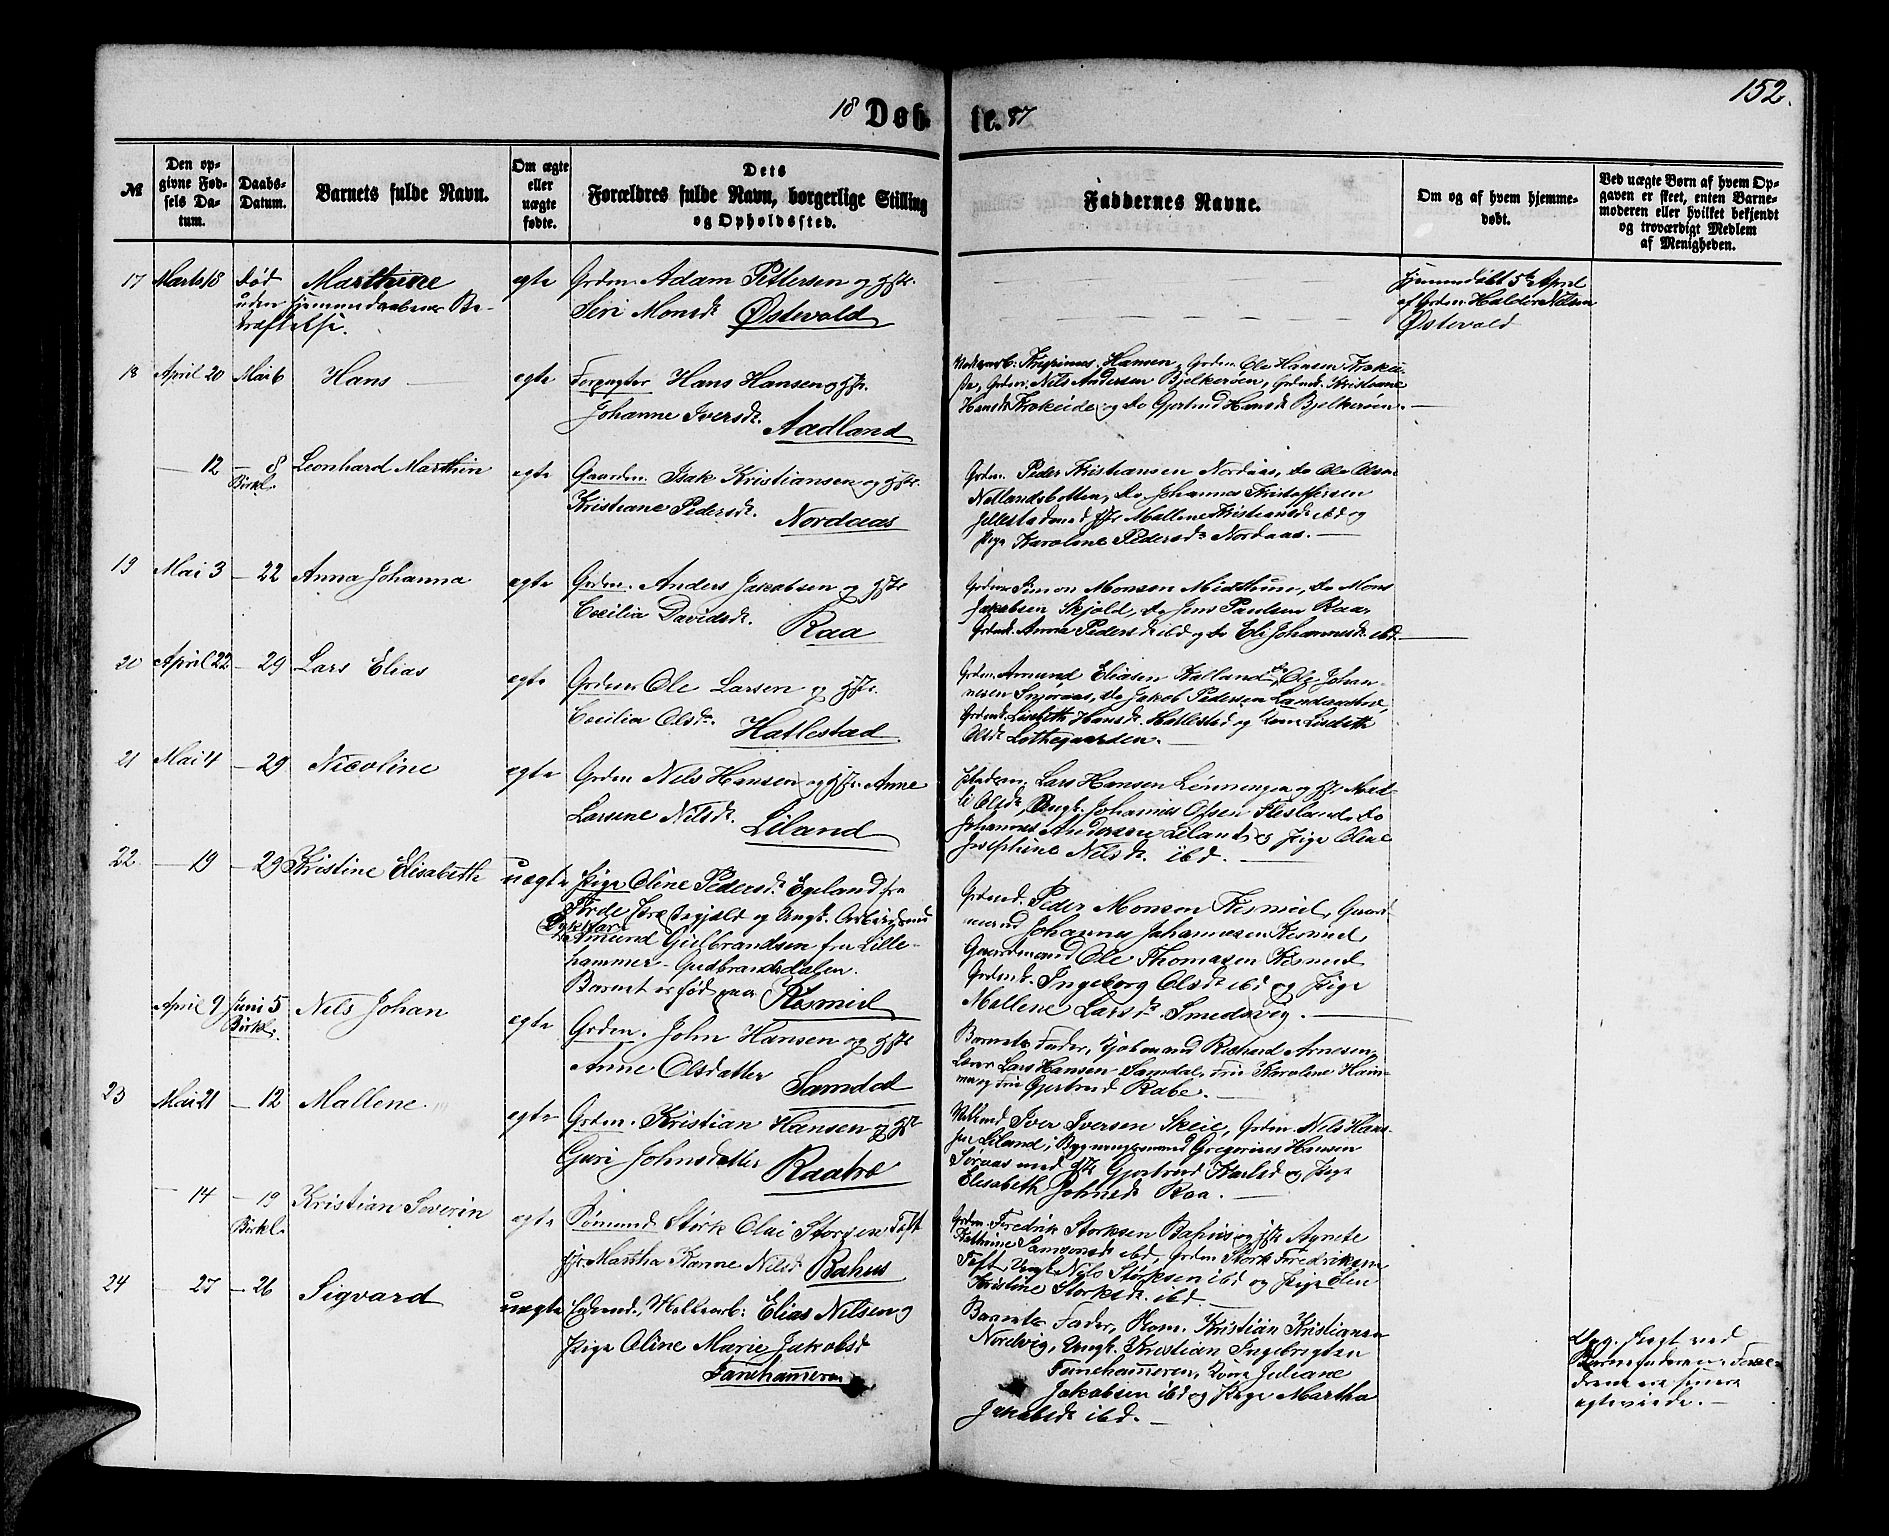 152.
18 Døb-
te. 87
№
Den op-
givne Fød-
sels Da-
tum.
Daabs-
Datum.
Barnets fulde Navn.
Om ægte
eller
uægte
fødte.
Dets
Forældres fulde Navn, borgerlige Stilling
og Opholdssted.
Faddernes Navne.
Om og af hvem hjemme-
døbt.
Ved uægte Børn af hvem Op-
gaven er skeet, enten Barne-
moderen eller hvilket bekjendt
og troværdigt Medlem
af Menigheden.
17 Marts 18 død Marthine egte Grdm. Adam Pettersen og Hstr.
uden hjemmedaabens Be-
kræftelse.
Siri Monsdr. Østevold
hjemmedøbt 5te April
af Grdm. Haldor Nilsen
Østevold
18 April 20 Mai 6 Hans egte Forpagter Hans Hansen og Hstr.
Johanne Iversdr. Aadland
Hansen, Grdm. Ole Hansen Krokei-
de, Grdm. Nils Andersen Bjelkerøen, Grdmd. Kristiane
Hansdr. Krokeide og do Gjertrud Hansdr. Bjelkerøen.
12 8 Leonhard Marthin egte Gaardm. Isak Kristiansen og Hstr.
Birkl.
Kristiane Pedersdr. Nordaas
Grdm. Peder Kristiansen Nordaas, do Ole Olsen
Natlandsbotten, do Johannes Kristoffersen
Hillestad med Hstr. Mallene Kristiansdr. ibd og
Pige Karoline Pedersdr. Nordaas.
19 Mai 3 22 Anna Johanna egte Grdm. Anders Jakobsen og Hstr.
Cecilia Davidsdr. Raa
Grdm. Simon Monsen Midttun, do Mons
Jakobsen Skjold, do Jens Paulsen Raa,
Grdmd. Anna Pedersdr. ibd og do Eli Johannesdr. ibd.
20 April 22 29 Lars Elias egte Grdm. Ole Larsen og Hstr.
Cecilia Olsdr. Hatlestad
Grdm. Amund Eliasen Kalland, do Ole Johan-
nesen Smøraas, do Jakob Pedersen
Grdmd. Lisbeth Hansdr. Hatlestad og Lisbeth
Olsdr. Lothegaarden.
21 Mai 4 29 Nicoline egte Grdm. Nils Hansen og Hstr. Anne
Larsine Nilsdr. Liland
Lars Hansen Lønningen og Hstr.
Olsdr., Ungk. Johannes Olsen Flesland, do
Johannes Andersen Liland og Pige Oline
Josephine Nilsdr. ibd.
22. 19 29 Kristine Elisabeth uægte Pige Oline Pedersdr. Egeland fra
Førde Præstegjæld og Ungk. Arbeidsmd
Amund Gulbrandsen fra Lille-
hammer - Gudbrandsdalen.
Barnet er født paa Kismul
Grdmd. Peder Monsen Kismul, Gaard-
mand Johannes Johannesen Kismul,
Gaardmand Ole Thomasen Kismul
Grdmdk. Ingeborg Olsdr. ibd og Pige
Mallene Larsdr. Smedsvig.
April 9 Juni 5 Nils Johan egte Grdm. John Hansen og Hstr.
Birkl.
Anne Olsdatter Samdal
Barnets Fader, Kjøbmand Richard Arnesen,
Lærer Lars Hansen Samdal, Fru Karoline
og Fru Gjertrud Rabe.
23 Mai 21 12 Mallene egte Grdm. Kristian Hansen og Hstr.
Guri Johnsdatter Raatræ
Iver Iversen Skeie, Grdm. Nils Han-
sen Liland, Bygningsmand Gregorius Hansen
Søraas med Hstr. Gjertrud Karlsd og Pige
Elisabeth Johnsdr. Raa.
14 19 Kristian Severin egte Sømand Størk Olai Størksen Toft
Birkl.
Hstr. Martha Hanne Nilsd Bahus
Grdm. Fredrik Størksen Bahus og Hstr. Agnete
Kathrine Samsonsdr. ibd, Grdm. Størk Fredriksen
Toft, Ungk. Nils Størksen ibd og Pige Elen
Kristine Størksdr. ibd.
24 27 26 Sigvard uægte Edmnd., Elias Nilsen og
Pige Oline Marie Jakobsd
Fanehammeren
Barnets Fader, Kristian Kristiansen
Nordvig, Ungk. Kristian Ingebrigtsen
Fanehammeren, Kone Juliane
Jakobsen ibd og Pige Martha
Jakobsdr. ibd.
Opg. skeet ved
Barnefaderen. Foræl-
drene ere senere
egteviede.